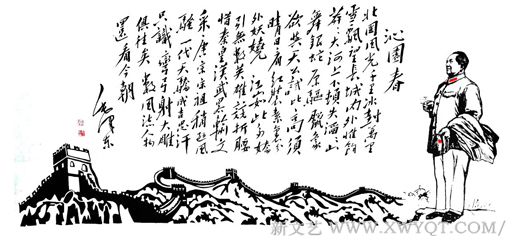 沁園春
北國風光千里冰封萬里
雪飄望長城內外惟餘
莽莽大河上下頓失滔滔山
舞銀蛇原馳蠟象
欲與天公試比高須
晴日看紅裝素裹分
外妖嬈 江山如此多嬌
引無數英雄競折腰
惜秦皇漢武略輸文
采唐宗宋祖稍遜風
騷一代天驕成吉思汗
只識彎弓射大雕
俱往矣數風流人物
還看今朝
毛澤東
新文艺 WWW.XWYQT.COM/